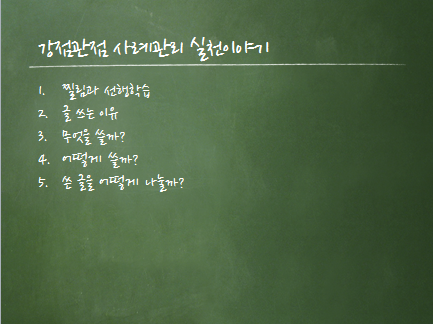 강점관점 사례관리 실천이야기
1. 찔림과 선행학습
2. 글 쓰는 이유
3. 무엇을 쓸까?
4. 어떻게 쓸까?
5. 쓴 글을 어떻게 나눌까?